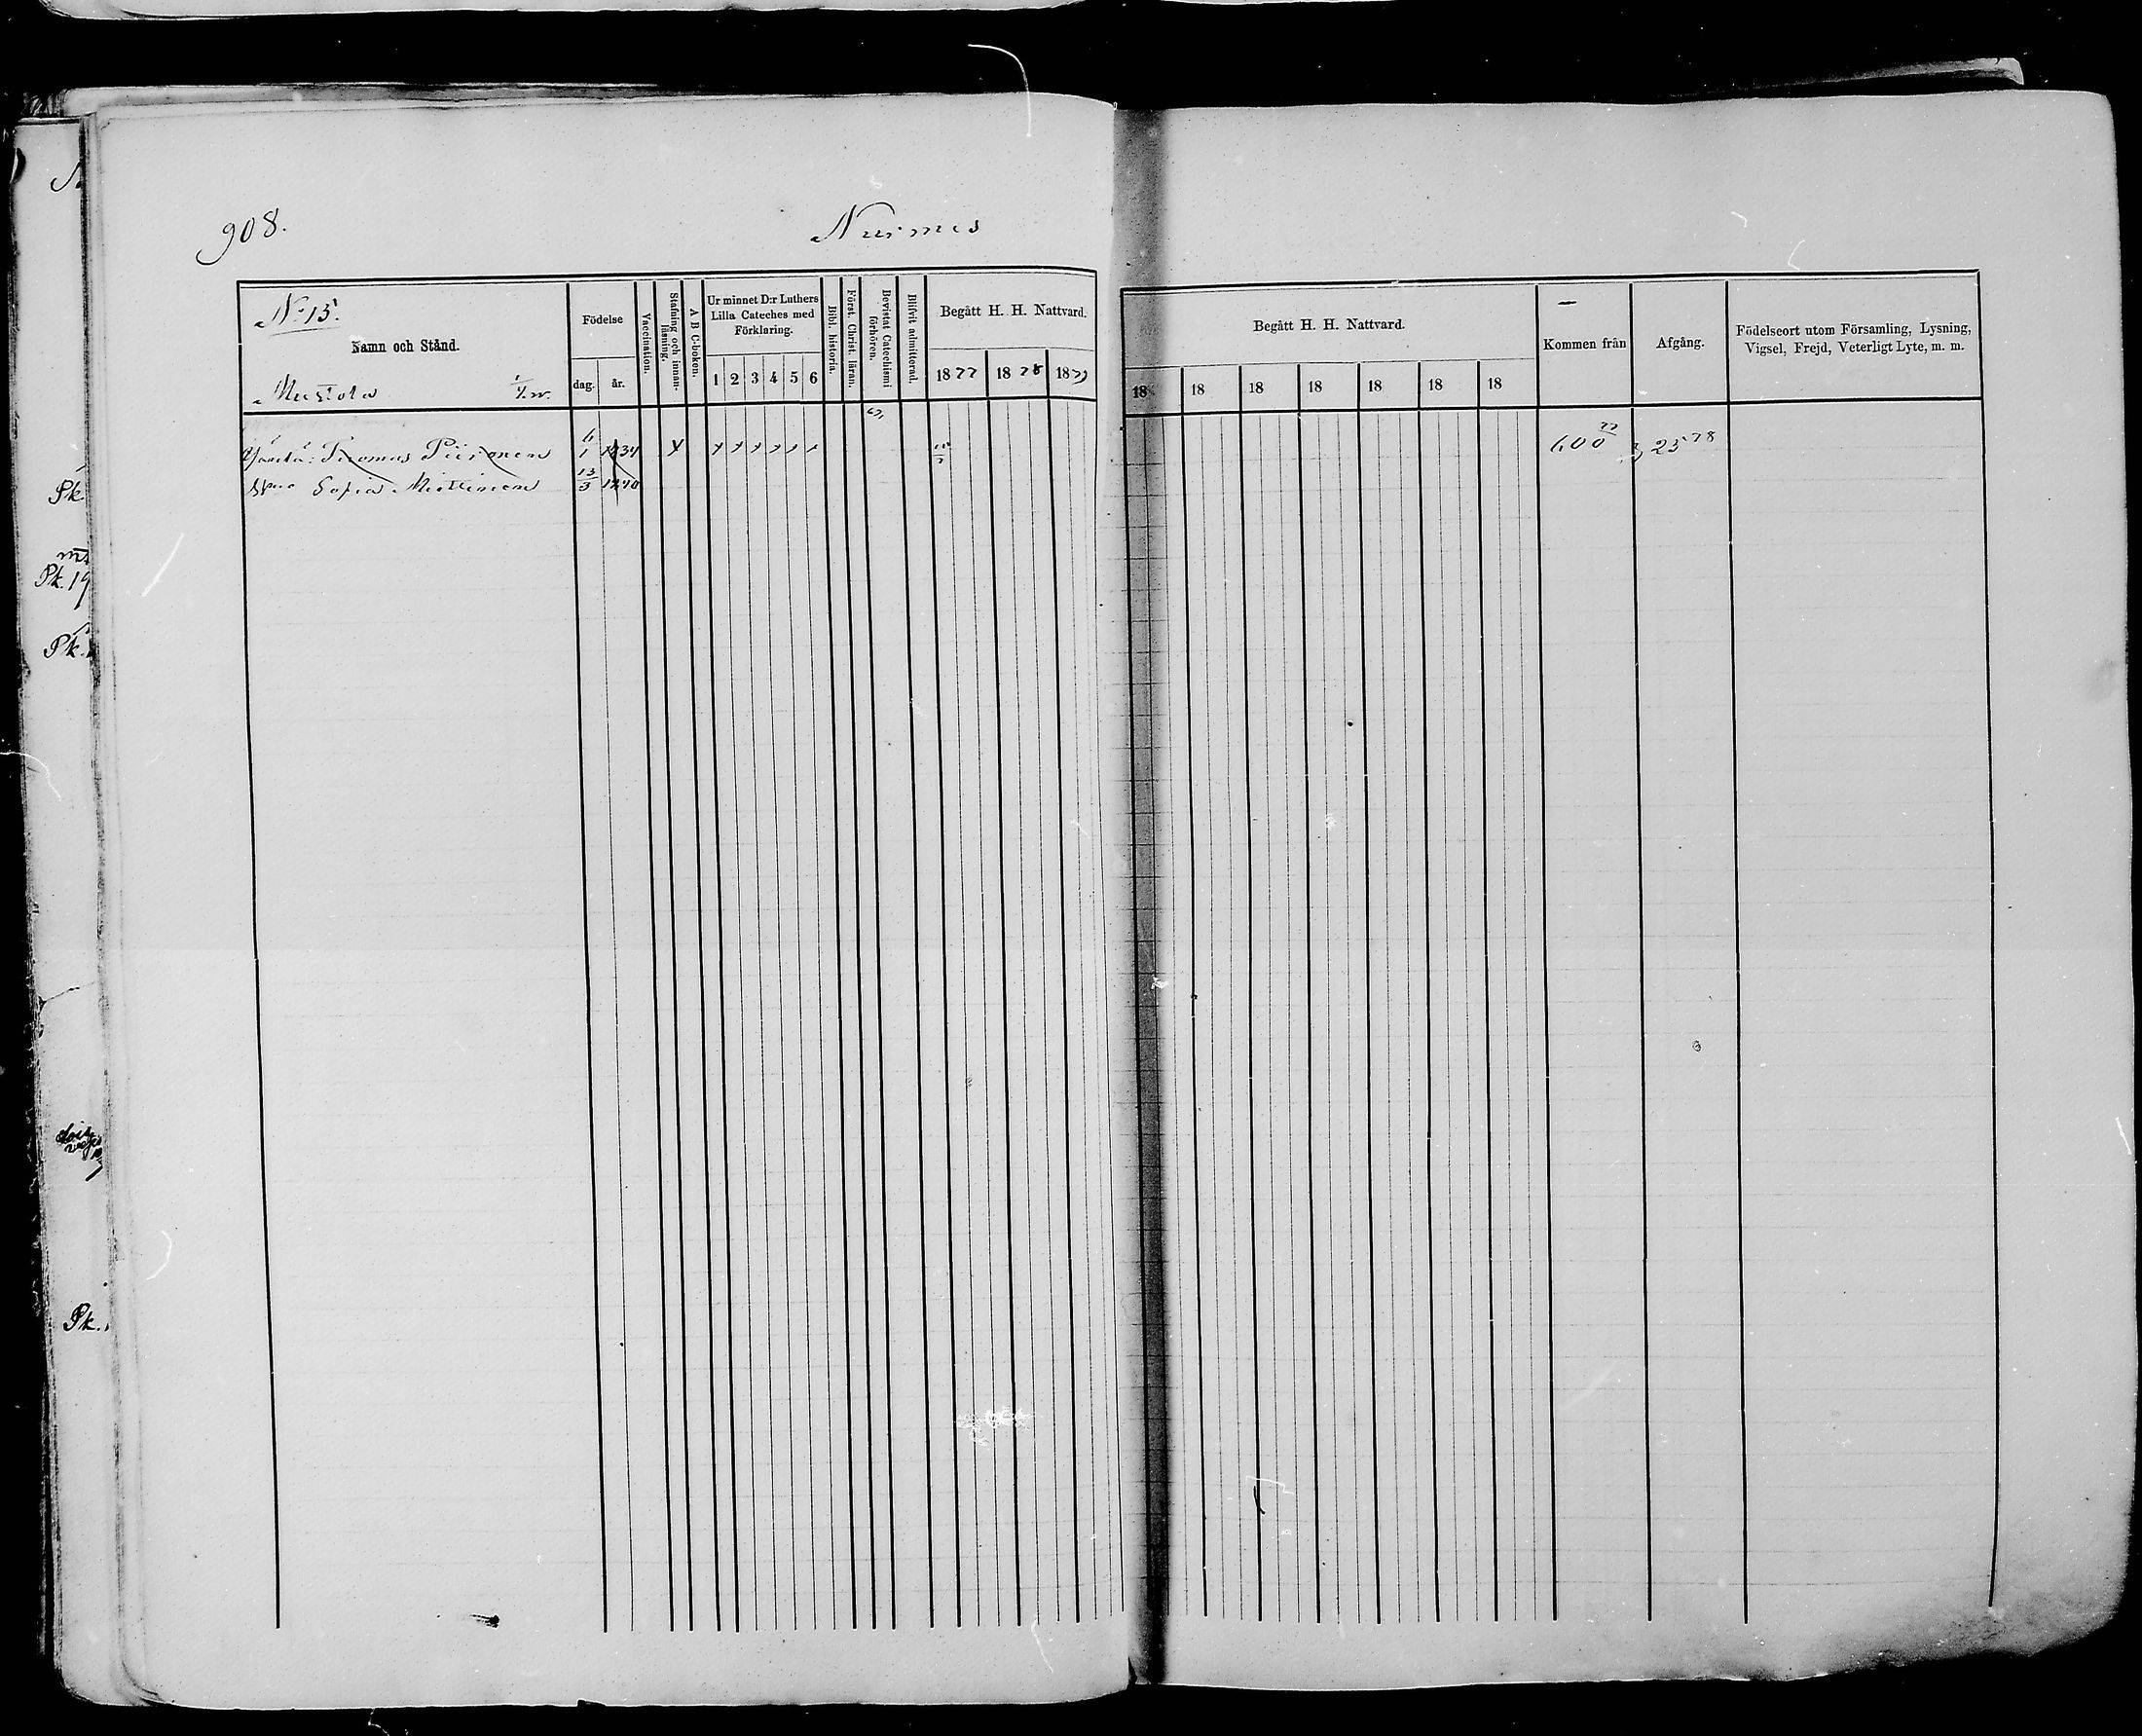 908.
Nurmes
No 15.
Namn och Stånd.
Mustola
Födelse
dag.
år.
Vaccination.
Stafning och innanläsning.
A B C-boken.
Ur minnet D:r Luthers
Lilla Cateches med
Förklaring.
1 2 3 4 5 6
Bibl. historia.
Först. Christ. läran.
Bevistat Catechismi förhören.
Blifvit admitterad.
Begått H. H. Nattvard.
1877 1878 1879
Begått H. H. Nattvard.
18 18 18 18 18 18 18
Kommen från
Afgång.
Födelseort utom Församling, Lysning,
Vigsel, Frejd, Veterligt Lyte, m. m.
Thomas Piironen 6/1 1834 600 77 25 78
Sofia Miettinen 13/3 1840
Pk.
Pk. 19
Pk.
Pk.